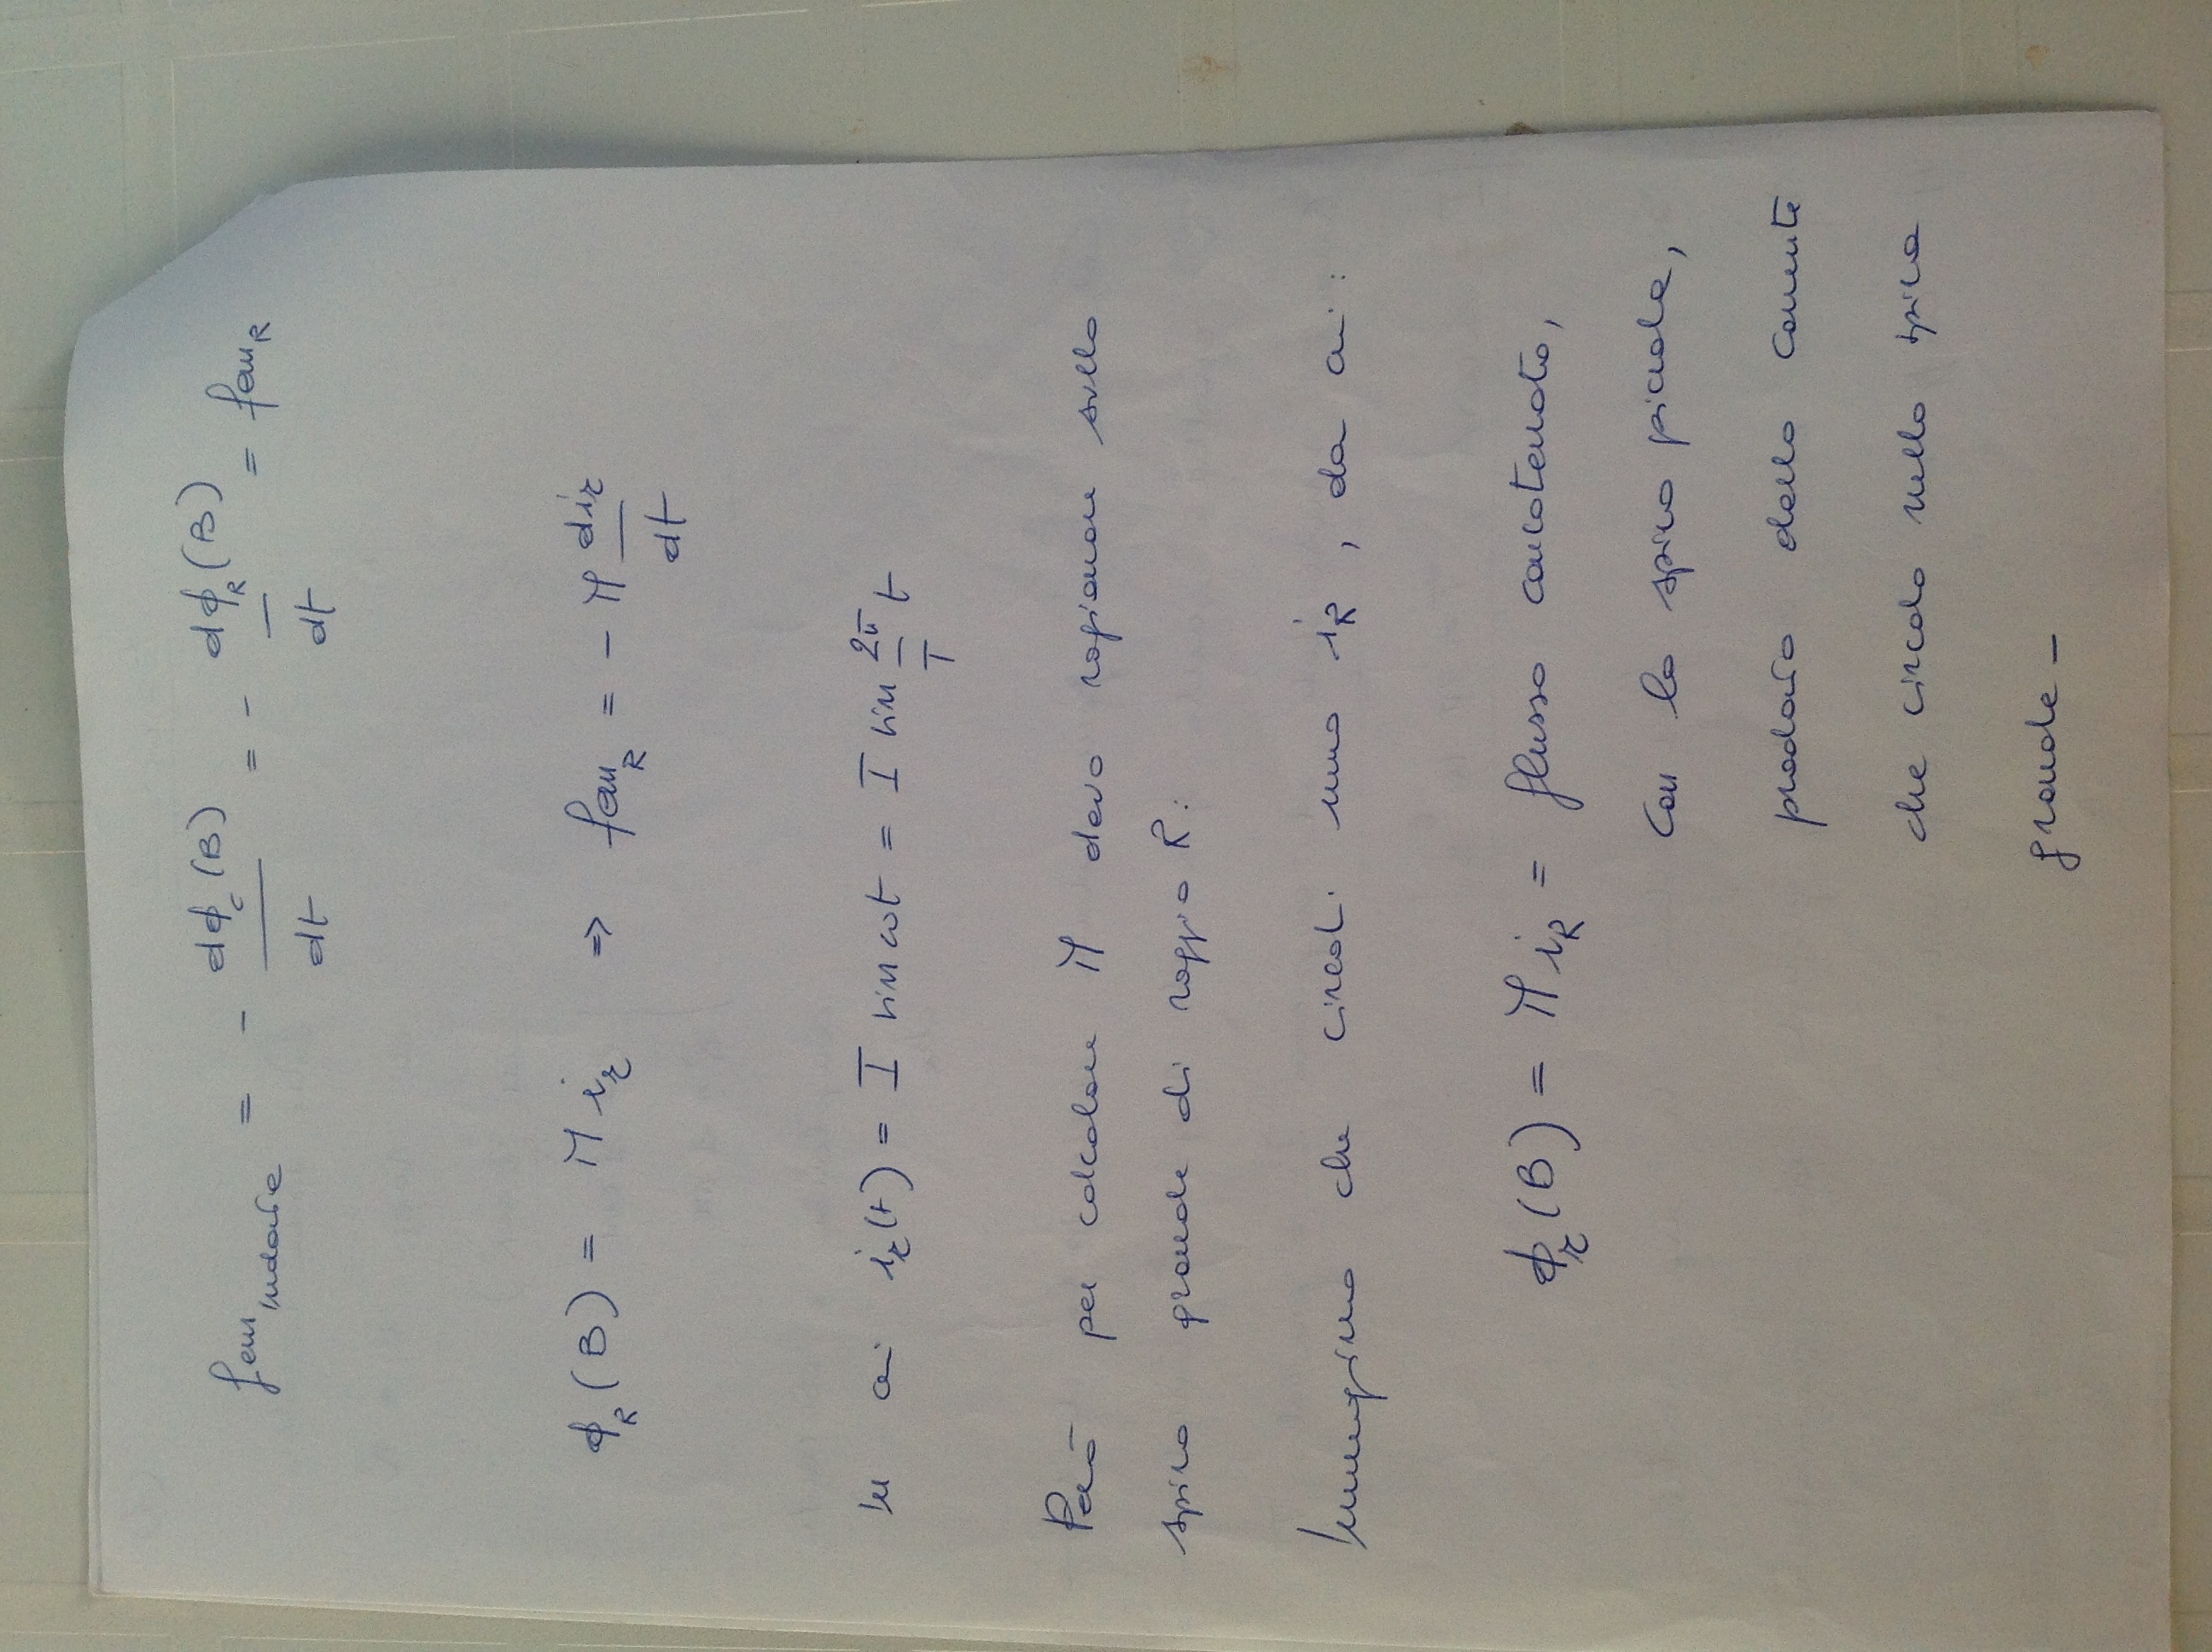 fem indotta = - dϕ_c(B)/dt = - dϕ_R(B)/dt = fem_R
ϕ_R(B) = M i_r ⇒ fem_R = - M di_r/dt
in cui i_r(t) = I sin ωt = I sin 2π/T t
Però per calcolare M devo ragionare sulla
spira grande di raggio R:
Immagino che circoli una i_R, da cui:
ϕ_r(B) = M i_R = flusso concatenato,
con la spira piccola,
prodotto dalla corrente
che circola nella spira
grande -